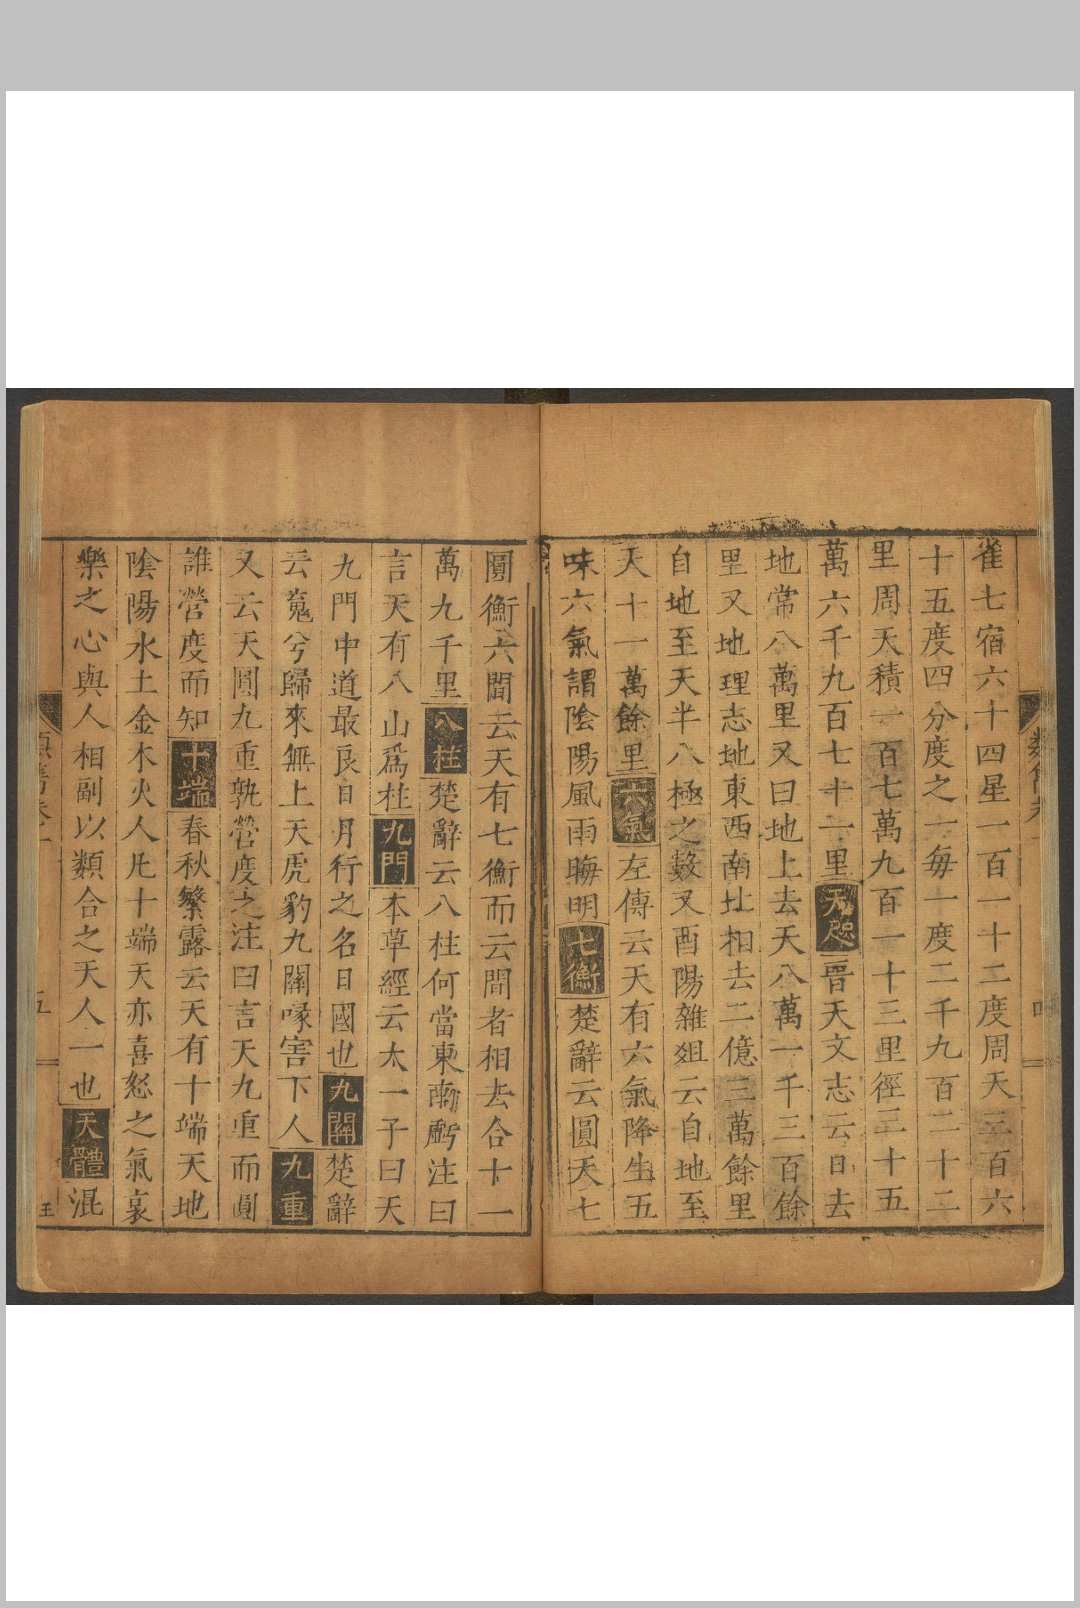 雀七宿六十四星一百一十二度周天三百六
十五度四分度之一每一度二千九百二十二
里周天積一百七萬九百一十三里徑三十五
萬六千九百七十一里天咫晋天文志云日去
地常八萬里又曰地上去天八萬一千三百餘
里又地理志地東西南北相去二億三萬餘里
自地至天半八極之數又酉陽雜俎云自地至
天十一萬餘里六氣左傳云天有六氣降生五
味六氣謂陰陽風雨晦明七衡楚辭云圓天七
圜衡六間云天有七衡而云間者相去合十一
萬九千里八柱楚辭云八柱何當東南虧注曰
言天有八山爲柱九門本草經云太一子曰天
九門中道最良日月行之名曰國也九關楚辭
云䰟兮歸來無上天虎豹九關啄害下人九重
又云天圓九重孰營度之注曰言天九重而圓
誰營度而知十端春秋繁露云天有十端天地
陰陽水土金木火人凡十端天亦喜怒之氣哀
樂之心與人相副以類合之天人一也天體混
五
王